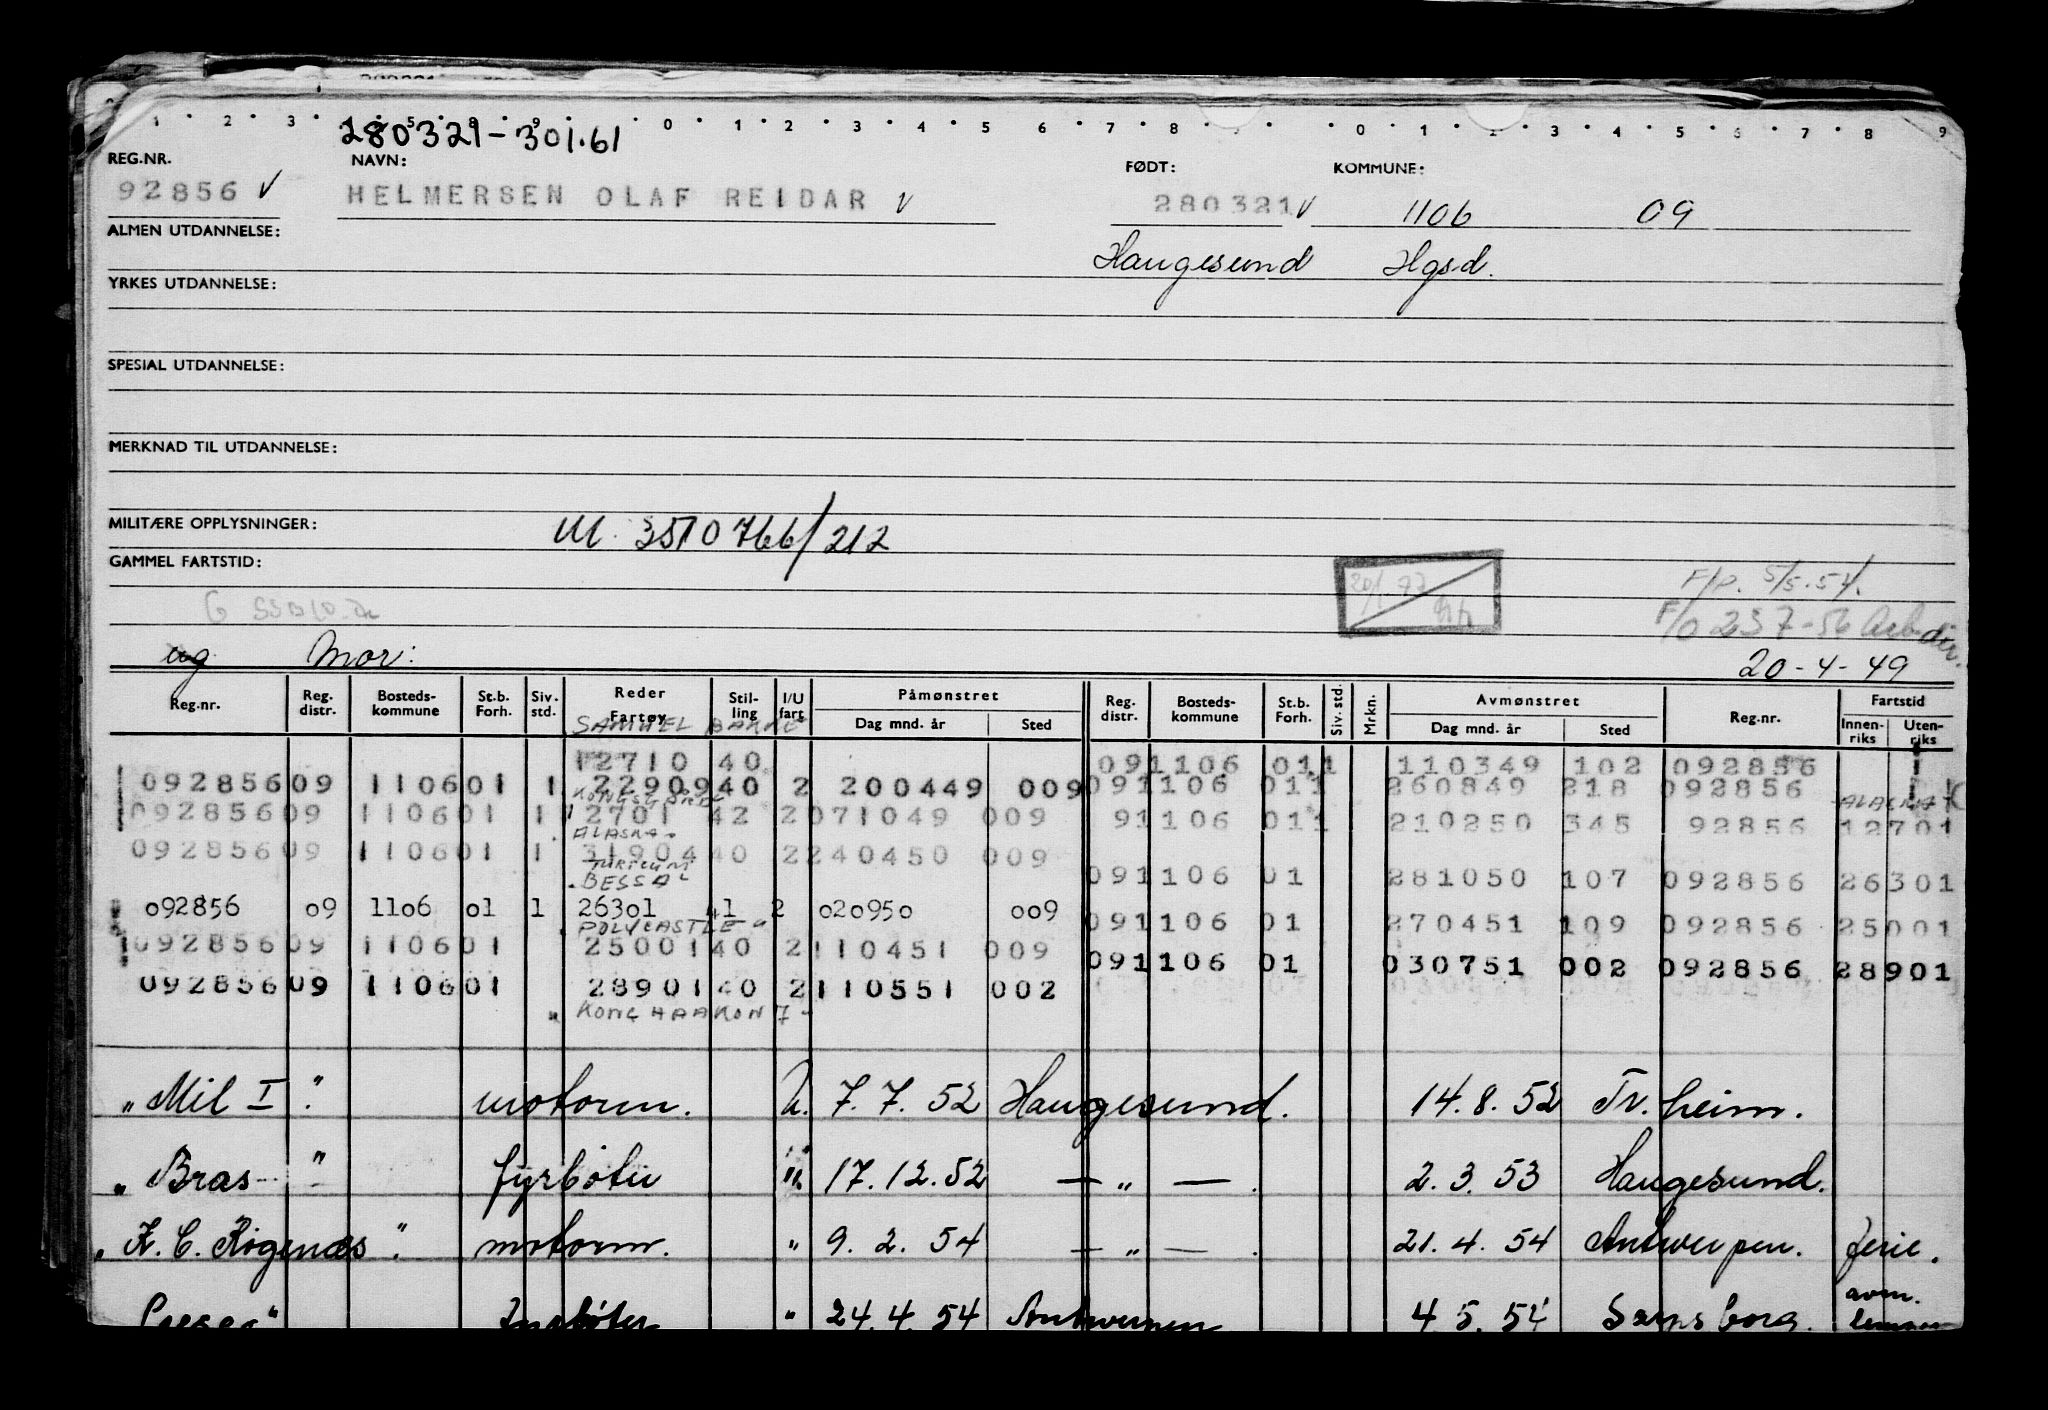 1 2 3 5 8 9 0 1 2 3 4 5 6 7 8 0 1 2 3 4 5 6 7 8 9
280321-301.61
REG.NR. NAVN: FØDT: KOMMUNE:
92856 V HELMERSEN OLAF REIDAR V 280321 V 1106 09
ALMEN UTDANNELSE: Haugesund Hgsd.
YRKES UTDANNELSE:
SPESIAL UTDANNELSE:
MERKNAD TIL UTDANNELSE:
MILITÆRE OPPLYSNINGER: M. 3510766/212
GAMMEL FARTSTID:
F/P. 5/5.54.
F/O 237-56 Arb.dir.
ug Mor: 20-4-49
Reg.nr. Reg. distr. Bosteds-kommune St.b. Forh. Siv. std. Reder Fartøy Stil-ling I/U fart Påmønstret Dag mnd. år Sted Reg. distr. Bosteds-kommune St.b. Forh. Siv. std. Mrkn. Avmønstret Dag mnd. år Sted Reg.nr. Fartstid Innen-riks Uten-riks
SAMUEL BAKKE
12710 40 091106 011 110349 102 092856
092856 09 1106 01 1 22909 40 2 200449 009 091106 011 260849 218 092856
KONGSGAARD ALASKA
092856 09 1106 01 1 12701 42 2 071049 009 91106 011 210250 345 92856 12701
ALASKA
092856 09 1106 01 1 31904 40 2 240450 009
TURICUM
091106 01 281050 107 092856 26301
BESSA
092856 09 1106 01 1 26301 41 2 020950 009
091106 01 270451 109 092856 25001
POLYCASTLE
092856 09 1106 01 25001 40 2 110451 009
091106 01 030751 002 092856 28901
092856 09 1106 01 28901 40 2 110551 002
KONG HAAKON 7
"Mil I" motorm. U. 7.7.52 Haugesund. 14.8.52 Tr.heim.
"Bras" fyrbøter " 17.12.52 — " — . 2.3.53 Haugesund.
"K. C. Rogenæs" motorm. " 9.2.54 — " — . 21.4.54 Antwerpen. ferie.
fyrbøter " 24.4.54 Antwerpen 4.5.54 Sarpsborg. avm.